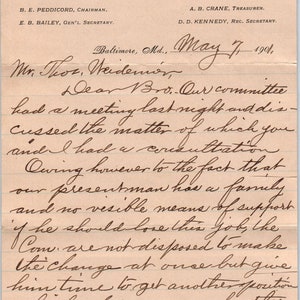 B. E. PEDDICORD, CHAIRMAN.
A. B. CRANE, TREASURER.
E. B. BAILEY, GEN'L. SECRETARY.
D. D. KENNEDY, REC. SECRETARY.
Baltimore, Md., May 7, 1901.
Mr. Thos. Weidemier
Dear Bro. Our committee
had a meeting last night and dis-
cussed the matter of which you
and I had a consultation
Owing however to the fact that
our present man has a family
and no visible means of support
if he should lose this job, the
Com. are not disposed to make
the change at once but give
him time to get another position